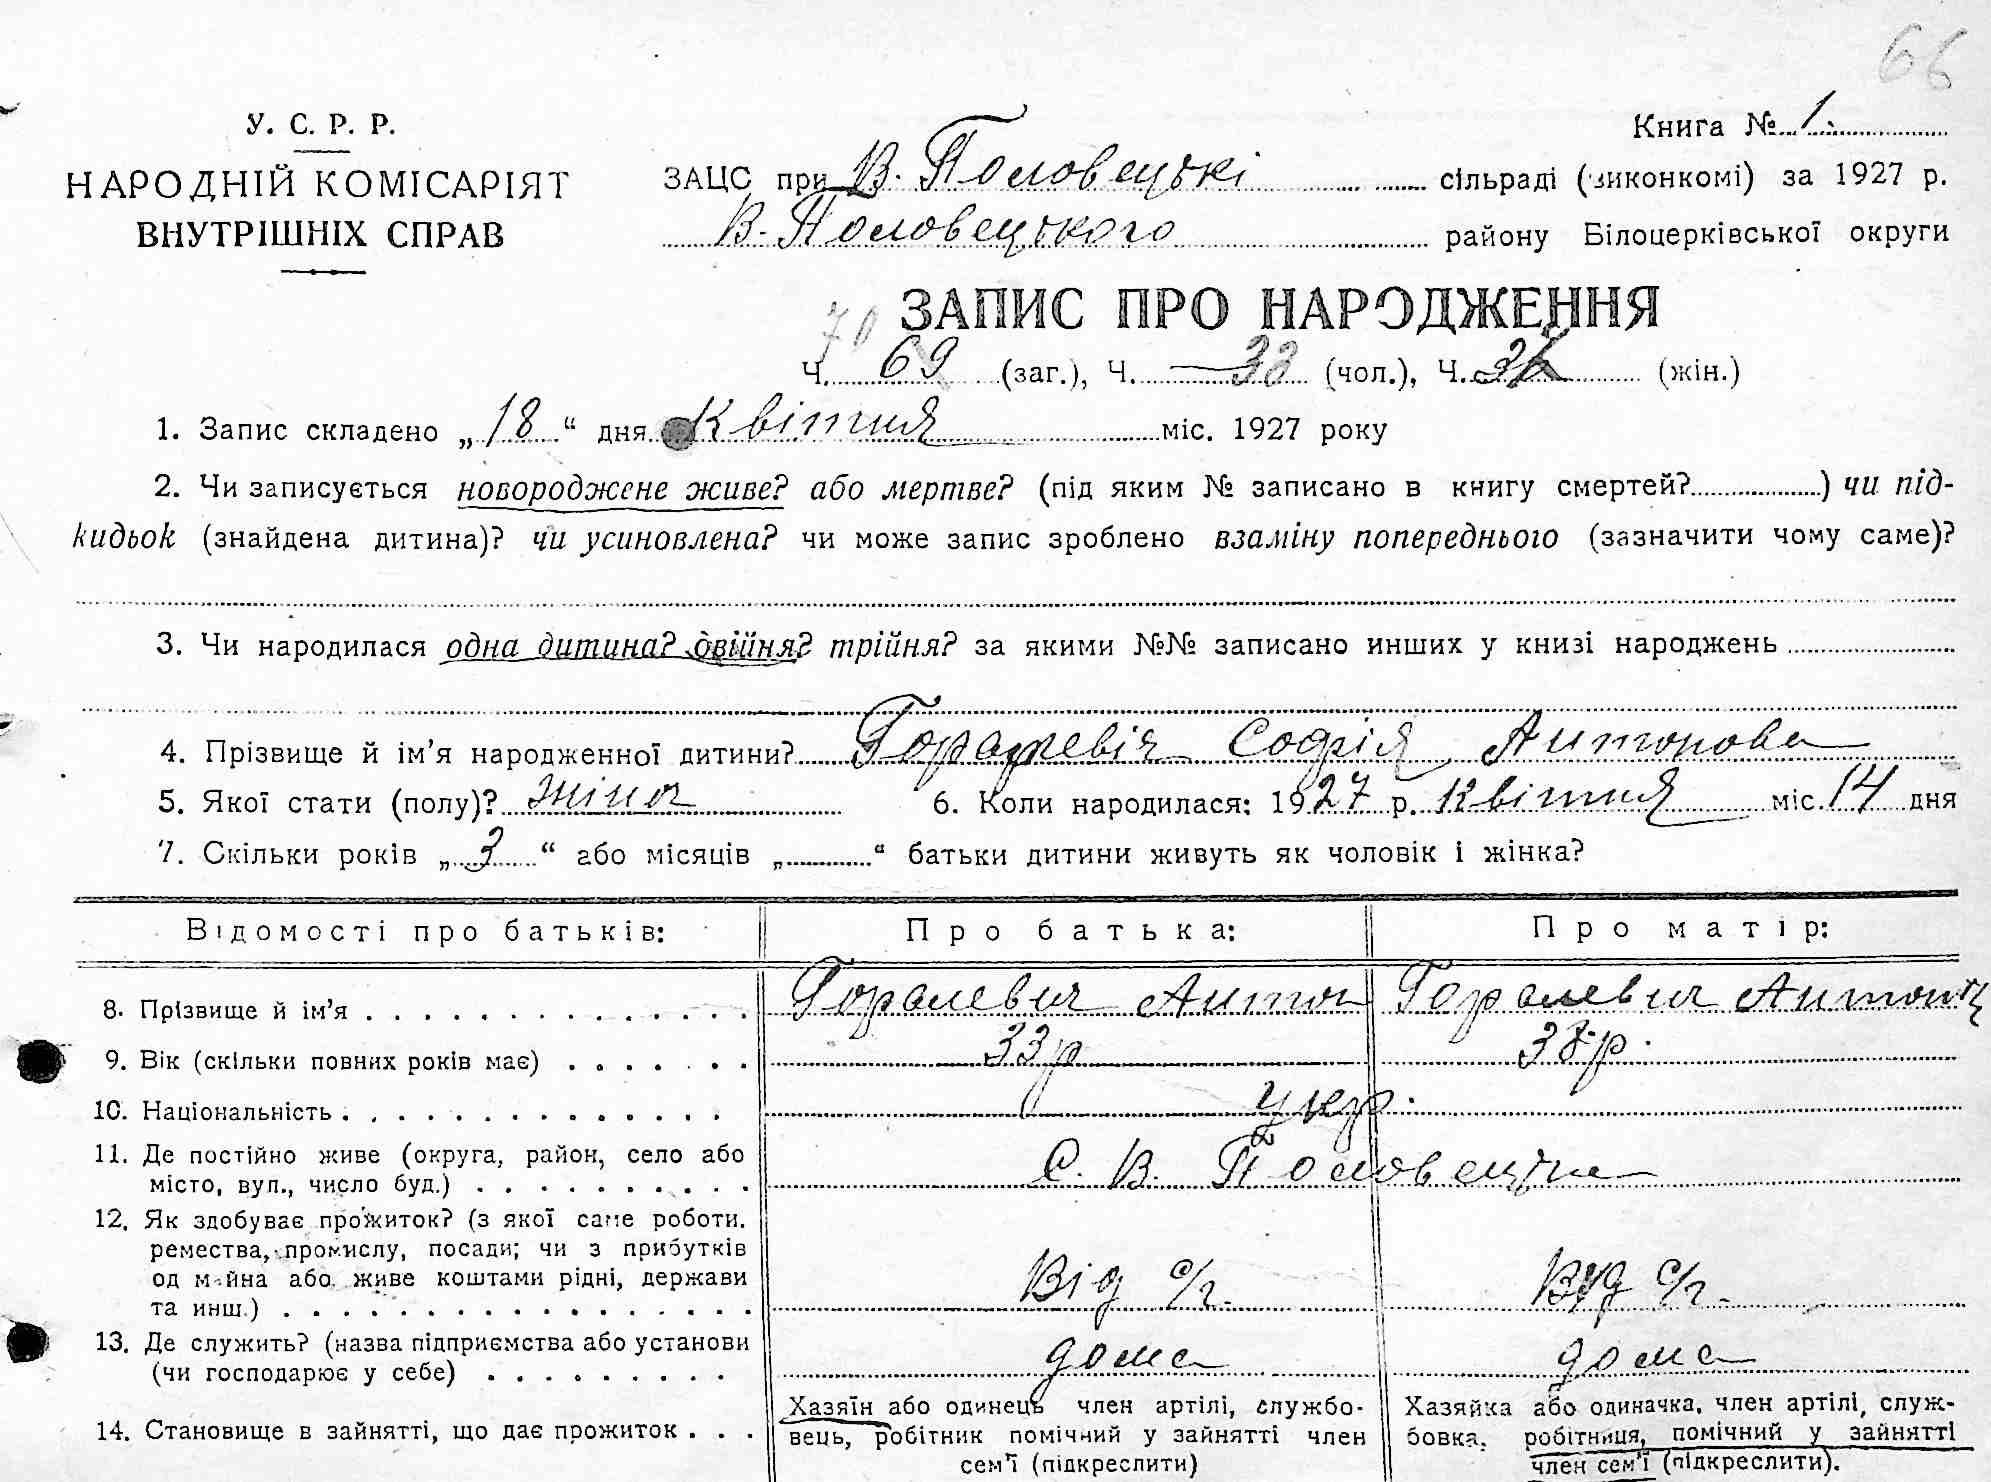 66
У. С. Р. Р.
НАРОДНІЙ КОМІСАРІЯТ
ВНУТРІШНІХ СПРАВ
Книга № 1.
ЗАЦС при В. Половецькі сільраді (виконкомі) за 1927 р.
В. Половецького району Білоцерківської округи
ЗАПИС ПРО НАРОДЖЕННЯ
70
Ч. 69 (заг.), Ч. 33 (чол.), Ч. (жін.)
1. Запис складено „18“ дня Квітня міс. 1927 року
2. Чи записується новороджене живе? або мертве? (під яким № записано в книгу смертей?) чи під-
кидьок (знайдена дитина)? чи усиновлена? чи може запис зроблено взаміну попереднього (зазначити чому саме)?
3. Чи народилася одна дитина? двійня? трійня? за якими №№ записано инших у книзі народжень
4. Прізвище й ім’я народженної дитини? Горалевіч Софія Антонова
5. Якої стати (полу)? жіноч 6. Коли народилася: 1927 р. Квітня міс. 14 дня
7. Скільки років „3“ або місяців „“ батьки дитини живуть як чоловік і жінка?
Відомості про батьків: Про батька: Про матір:
8. Прізвище й ім’я Горалевич Антон Горалевич Антони
9. Вік (скільки повних років має) 33 р 38 р.
10. Національність укр.
11. Де постійно живе (округа, район, село або
місто, вул., число буд.) С. В. Половецьке
12. Як здобуває прожиток? (з якої саме роботи,
ремества, промислу, посади; чи з прибутків
од майна або живе коштами рідні, держави
та инш.) Від с/г. Від с/г.
13. Де служить? (назва підприємства або установи
(чи господарює у себе) дома дома
14. Становище в зайнятті, що дає прожиток
Хазяїн або одинець член артілі, службо-
вець, робітник помічний у зайнятті член
сем’ї (підкреслити)
Хазяйка або одиначка, член артілі, служ-
бовка, робітниця, помічний у зайнятті
член сем’ї (підкреслити).